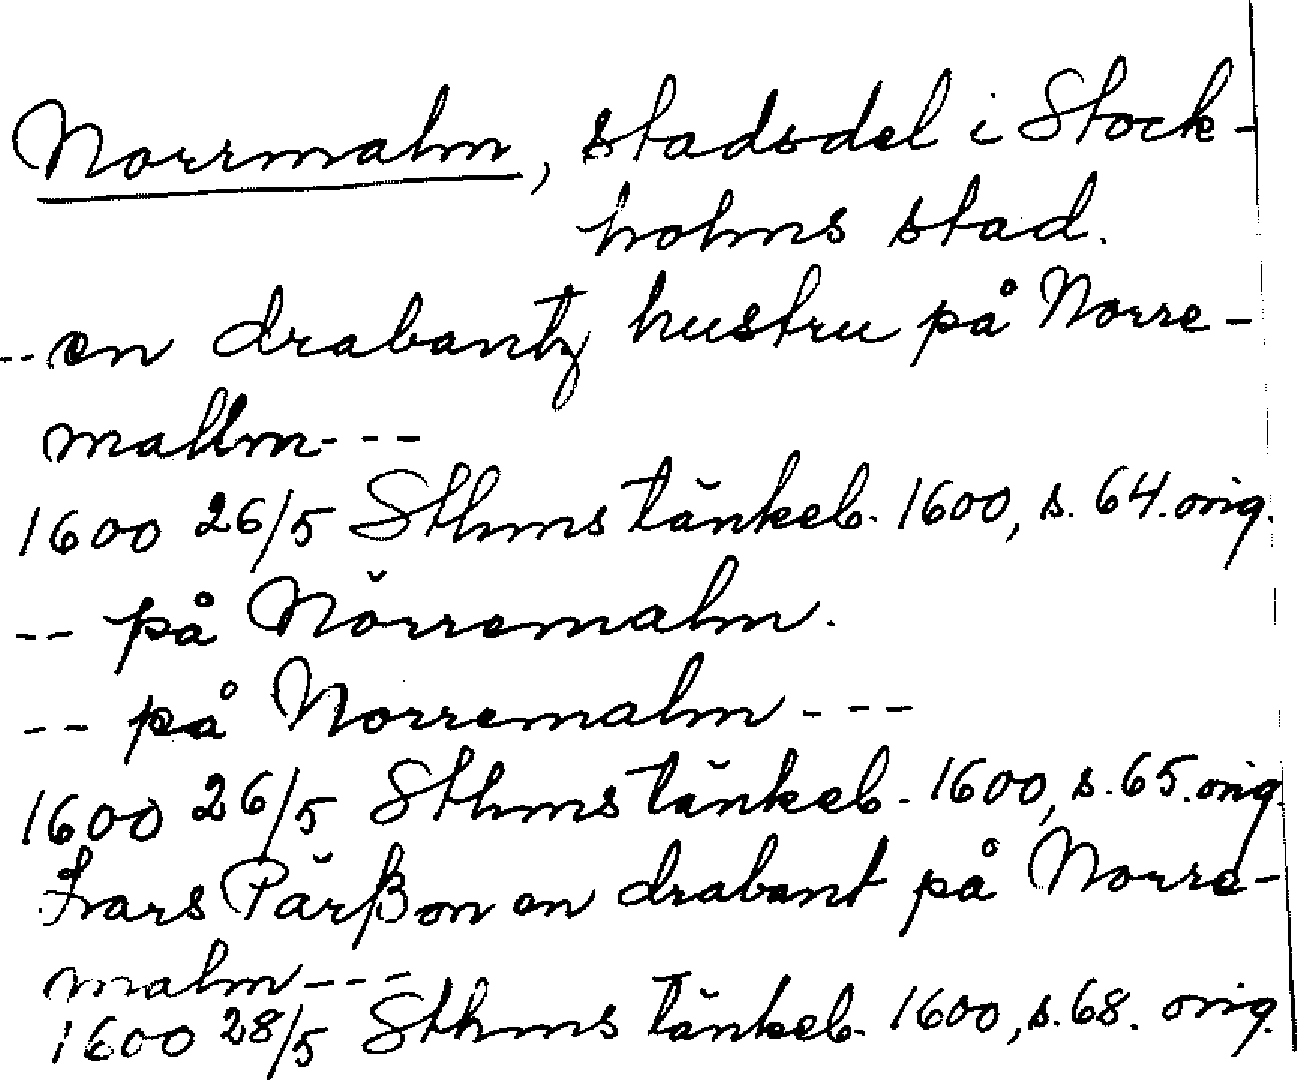 Norrmalm, stadsdel i Stock-
holms stad.
-- en drabantz hustru på Norre-
mallm ---
1600 26/5 Sthms tänkeb. 1600, s. 64. orig.
-- på Nörremalm.
-- på Norremalm ---
1600 26/5 Sthms tänkeb. 1600, s. 65. orig.
Lars Pärßon en drabant på Norre-
malm ---
1600 28/5 Sthms tänkeb. 1600, s. 68. orig.